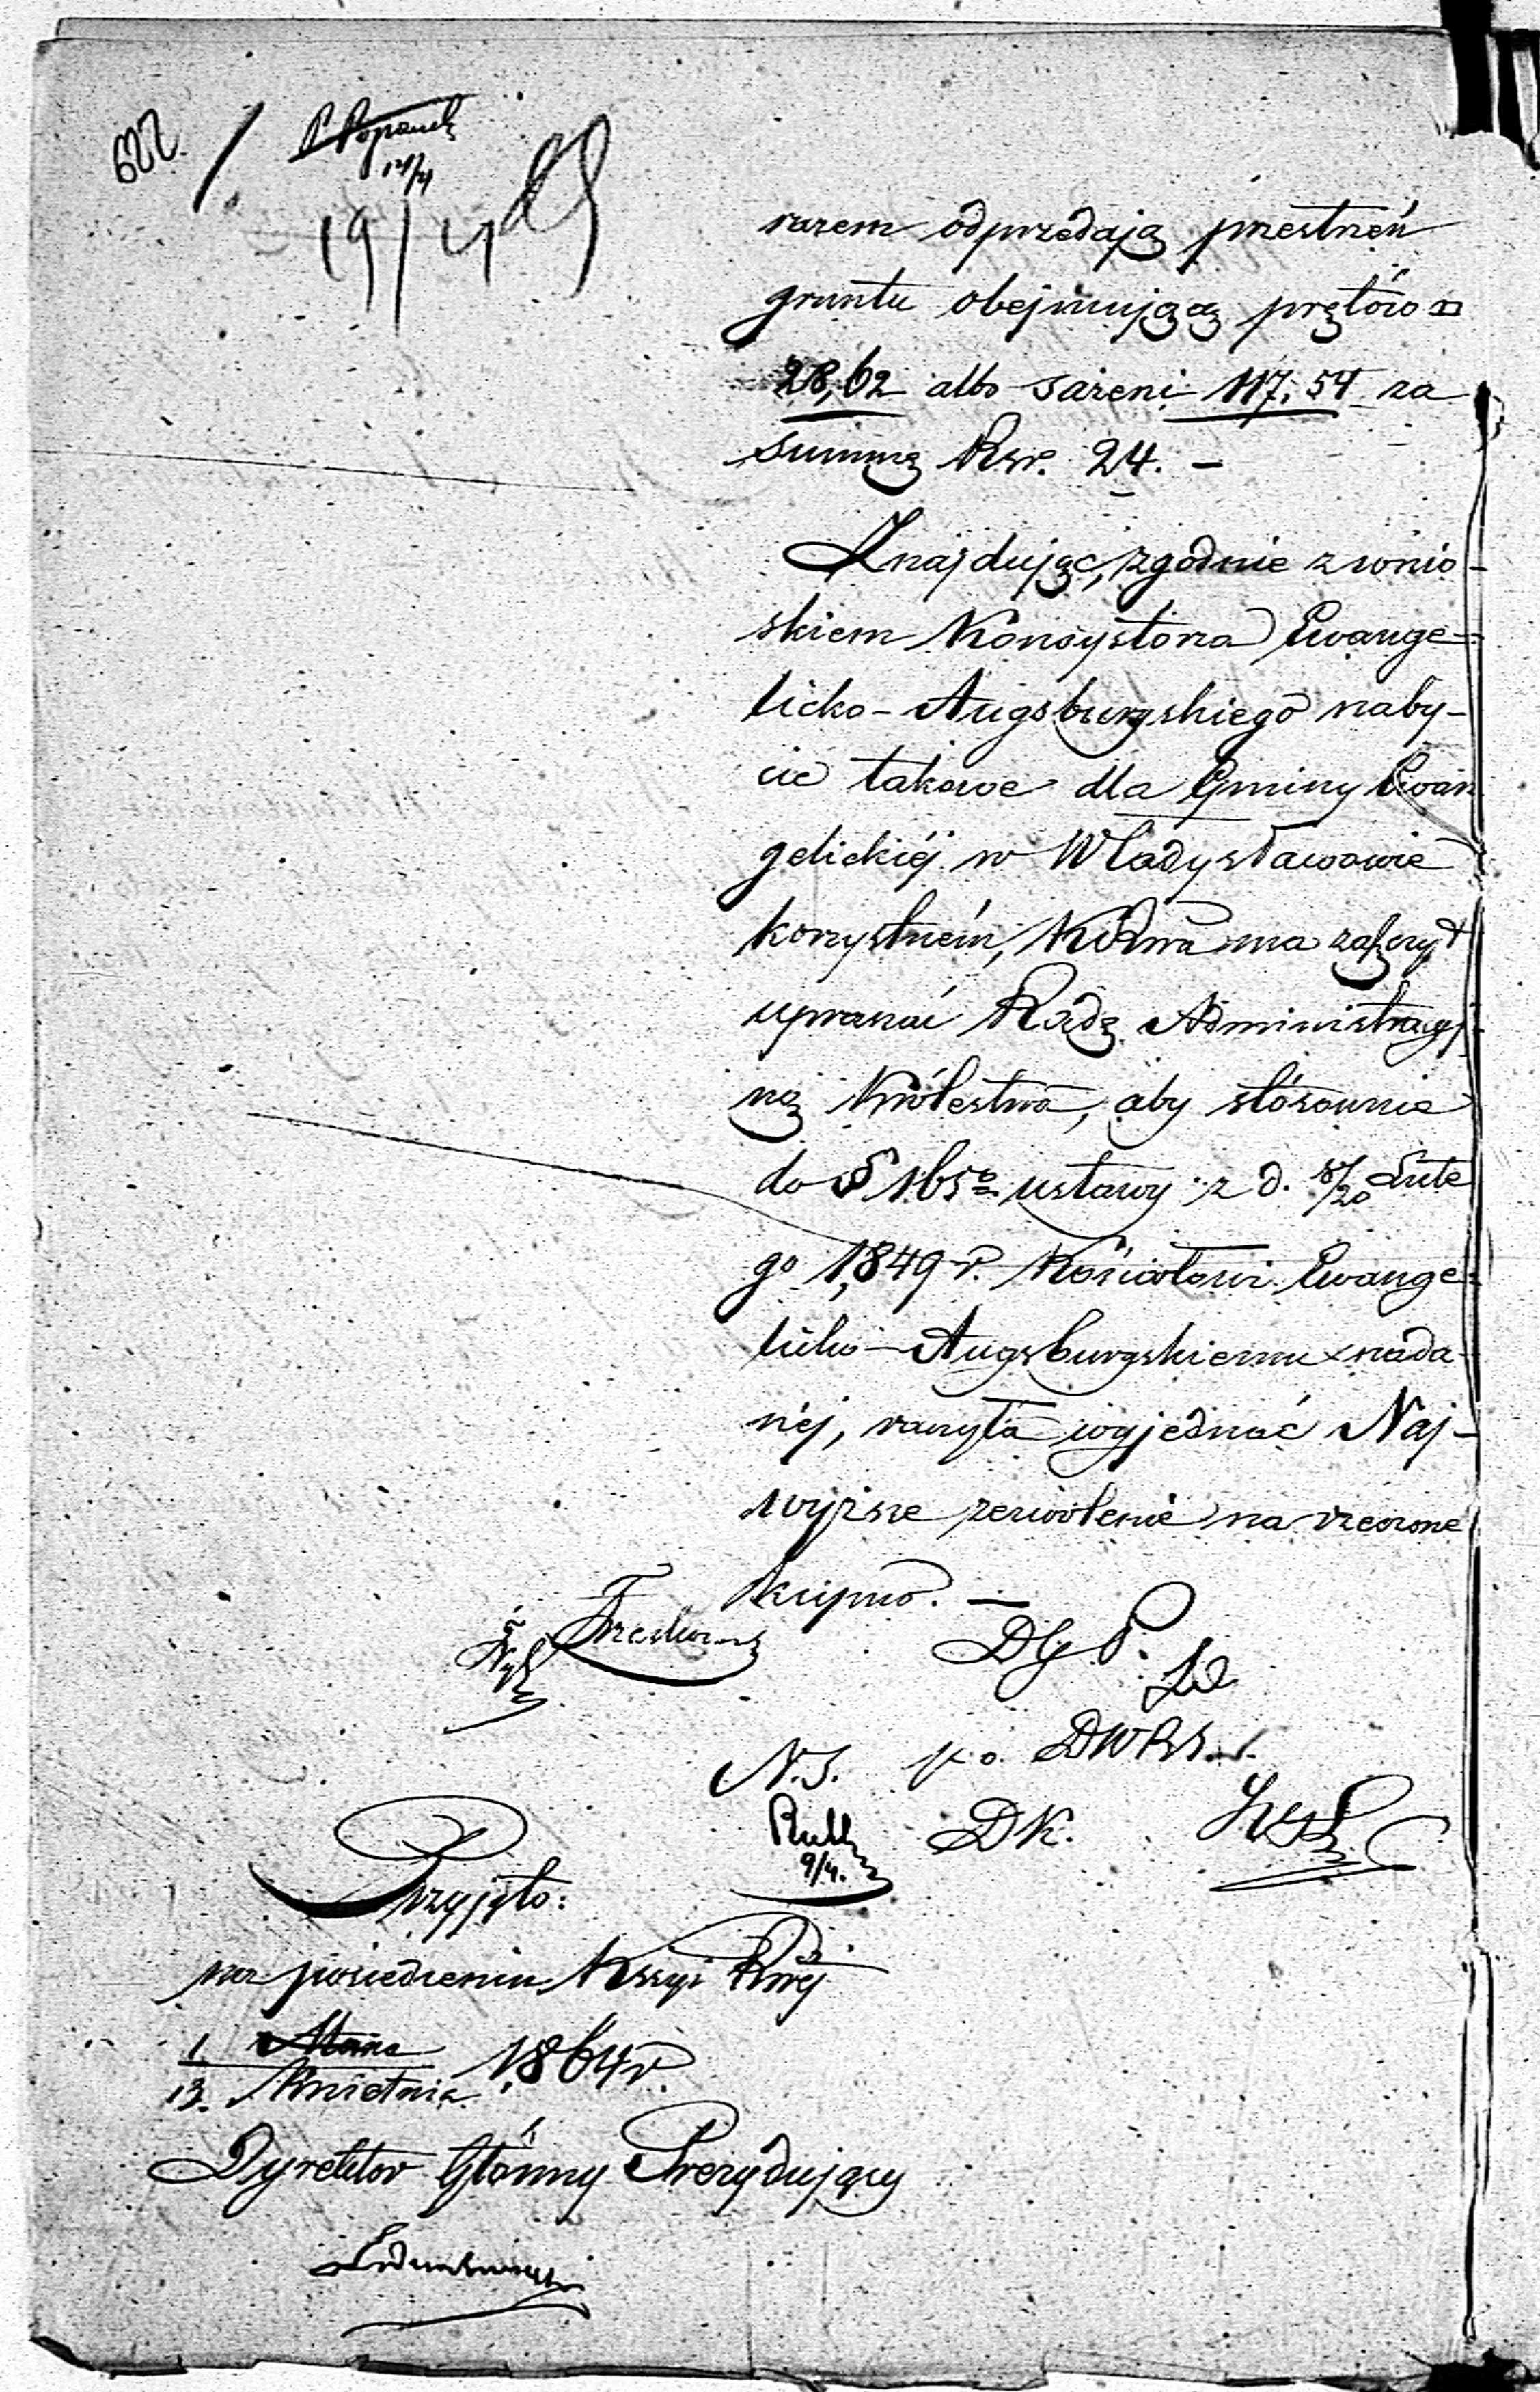 622
19/4
razem odprzedają przestrzeń
gruntu obejmującą prętów □
28,62 albo sążeni 117,54 za
summę Rsr. 24. –
Znajdując, zgodnie z wnio-
skiem Konsystorza Ewange-
licko-Augsburgskiego naby-
cie takowe dla Gminy Ewan
gelickiéj w Władysławowie
korzystném, Kōwa ma zaszczyt
upraszać Radę Administracyj-
ną Królestwa, aby stósownie
do § 165º ustawy z d. 8/20 Lute
go 1849 r. Kościołowi Ewange-
licko-Augsburgskiemu nada-
néj, raczyła wyjednać Naj-
wyższe zezwolenie na rzeczone
kupno. –
DGP.
N.S. p.o. DWRS.
9/4. DK.
Przyjęto:
na posiedzeniu Kssyi Rząj
1 Marca
13. Kwietnia 1864 r.
Dyrektor Główny Prezydujący